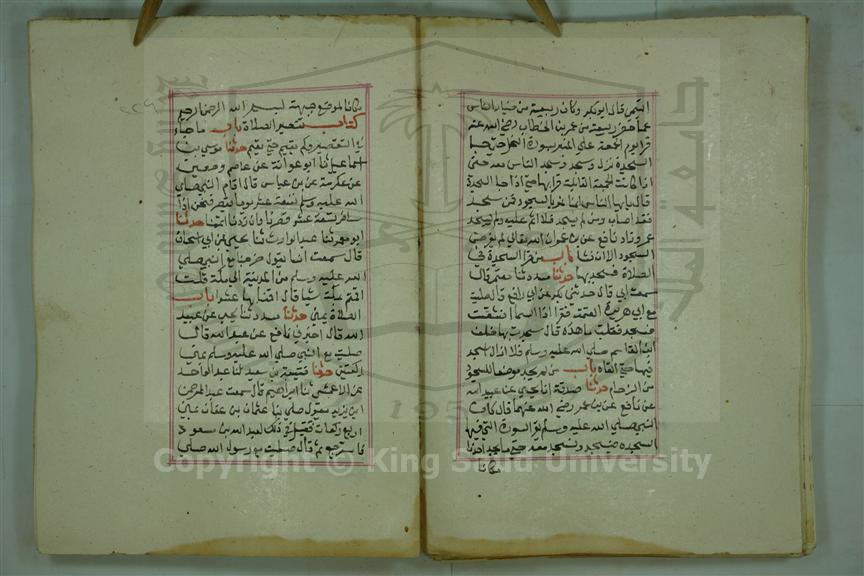 التيمي قال ابو بكر وكان ربيعة من خيار الناس
عما حضر ربيعة من عمر بن الخطاب رضي الله عنه
قرا يوم الجمعة على المنبر بسورة النحل حتى اذا جا
السجدة نزل وسجد وسجد الناس معه حتى
اذا كانت الجمعة القابلة قرا بها حتى اذا جا السجدة
قال يا ايها الناس انما نمر بالسجود فمن سجد
فقد اصاب ومن لم يسجد فلا اثم عليه ولم يسجد
عمر وزاد نافع عن بن عمر ان الله تعالى لم يفرض
السجود الا ان نشا باب من قرا السجدة في
الصلاة فسجد بها حدثنا مسدد ثنا معتمر قال
سمعت ابي قال حدثني بكر عن ابي رافع قال صليت
مع ابي هريرة العتمة فقرا اذا السما انشقت
فسجد فقلت ما هذه قال سجدت بها خلف
ابي القاسم صلى الله عليه وسلم فلا ازال اسجد
فيها حتى القاه باب من لم يجد موضعا للسجود
من الزحام حدثنا صدقة انا يحيى عن عبيد الله
عن نافع عن بن عمر رضي الله عنهما قال كان
النبي صلى الله عليه وسلم يقرا السورة التي فيها
السجدة فيسجد ونسجد معه حتى ما يجد احدنا
مكانا
مكانا لموضع جبهته بسم الله الرحمن الرحيم
كتاب تقصير الصلاة باب ما جاء
في التقصير وكم يقيم حتى يقصر حدثنا موسى بن
اسماعيل ثنا ابو عوانة عن عاصم وحصين
عن عكرمة عن بن عباس قال اقام النبي صلى
الله عليه وسلم تسعة عشر يوما يقصر فنحن اذا
سافرنا تسعة عشر قصرنا وان زدنا اتممنا حدثنا
ابو معمر ثنا عبد الوارث ثنا يحيى بن ابي اسحاق
قال سمعت انسا يقول خرجنا مع النبي صلى
الله عليه وسلم من المدينة الى مكة قلت
اقمتم بمكة شيا قال اقمنا بها عشرا باب
الصلاة بمنى حدثنا مسدد ثنا يحيى عن عبيد
الله قال اخبرني نافع عن عبد الله قال
صليت مع النبي صلى الله عليه وسلم بمنى
ركعتين حدثنا قتيبة بن سعيد ثنا عبد الواحد
عن الاعمش ثنا ابراهيم قال سمعت عبد الرحمن
ابن يزيد يقول صلى بنا عثمان بن عفان بمنى
اربع ركعات فقيل في ذلك لعبد الله بن مسعود
فاسترجع ثم قال صليت مع رسول الله صلى
جامعة الملك
195
Copyright © King Saud University